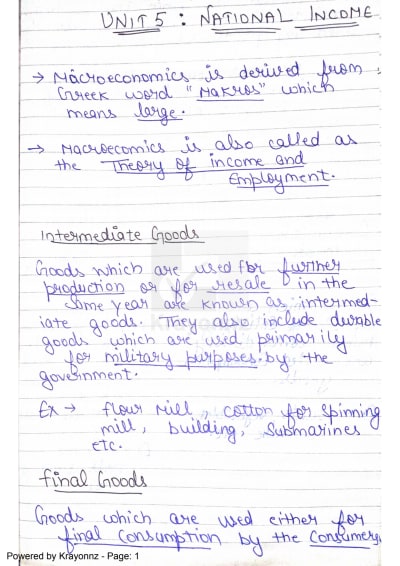 UNIT 5 : NATIONAL INCOME
→ Macroeconomics is derived from
Greek word "MAKROS" which
means large.
→ Macroecomics is also called as
the Theory of income and
Employment.
Intermediate Goods
Goods which are used for further
production or for resale in the
same year are known as intermed-
iate goods. They also include durable
goods which are used primarily
for military purposes by the
government.
Ex → flour Mill, cotton for spinning
mill, building, submarines
etc.
final Goods
Goods which are used either for
final consumption by the consumers,
Powered by Krayonnz - Page: 1